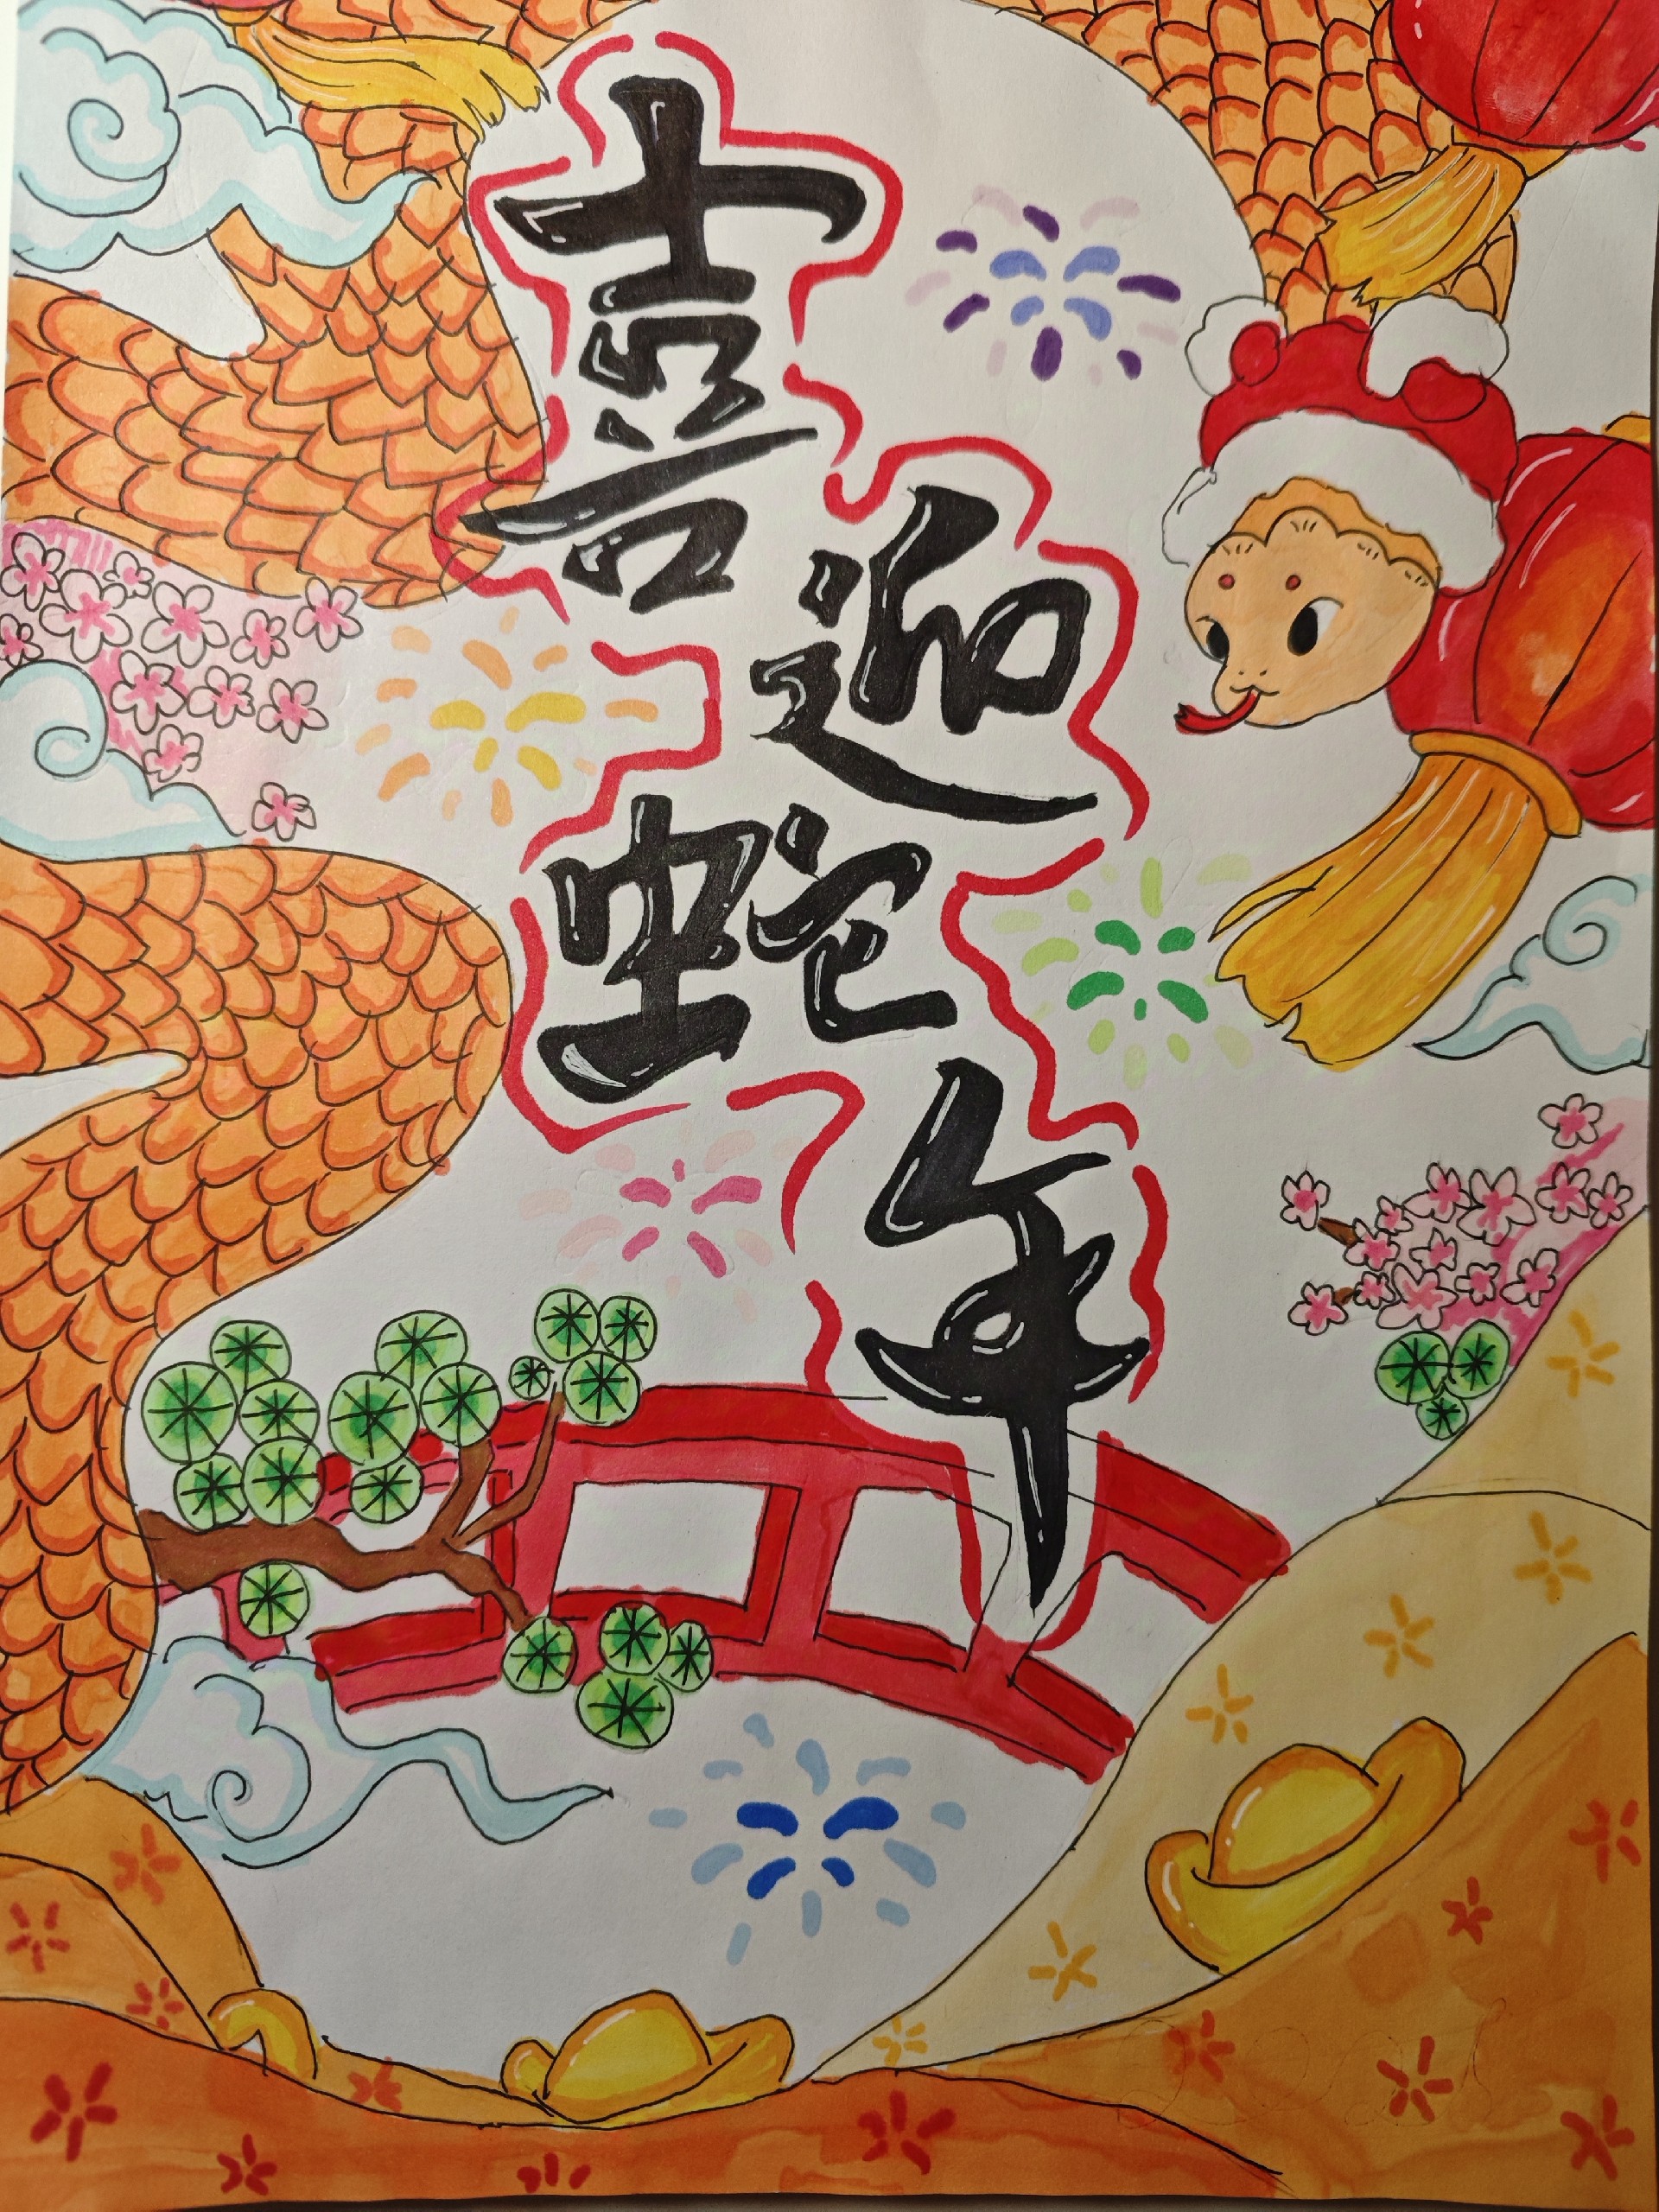 喜迎蛇年